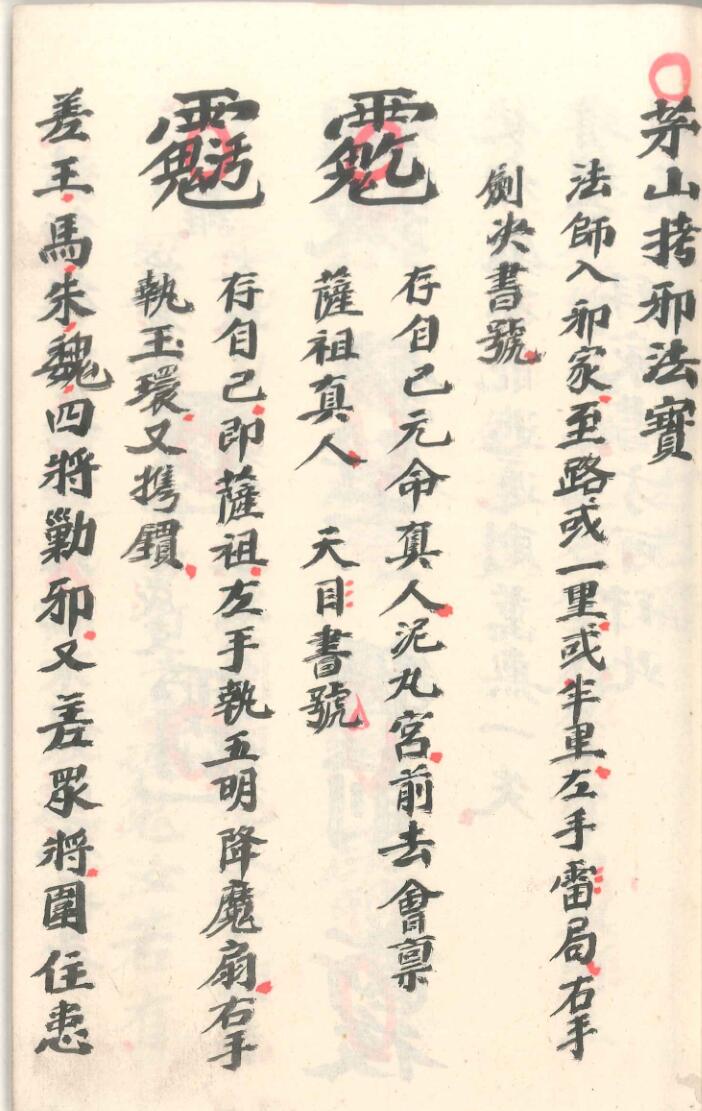 茅山拷邪法寳
法師入邪家至路或一里或半里左手雷局右手
劍决書號
存自己元命真人泥丸宮前去會禀
薩祖真人 天目書號
存自己即薩祖左手執五明降魔扇右手
執玉環又携鑽
差王馬朱魏四將勦邪又差眾將圍住患